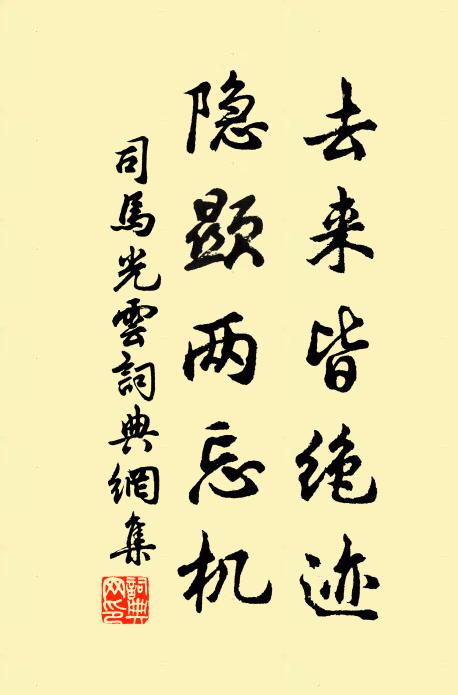 去来皆绝迹
隐显两忘机
司馬光雲詞典網集
詞典網印